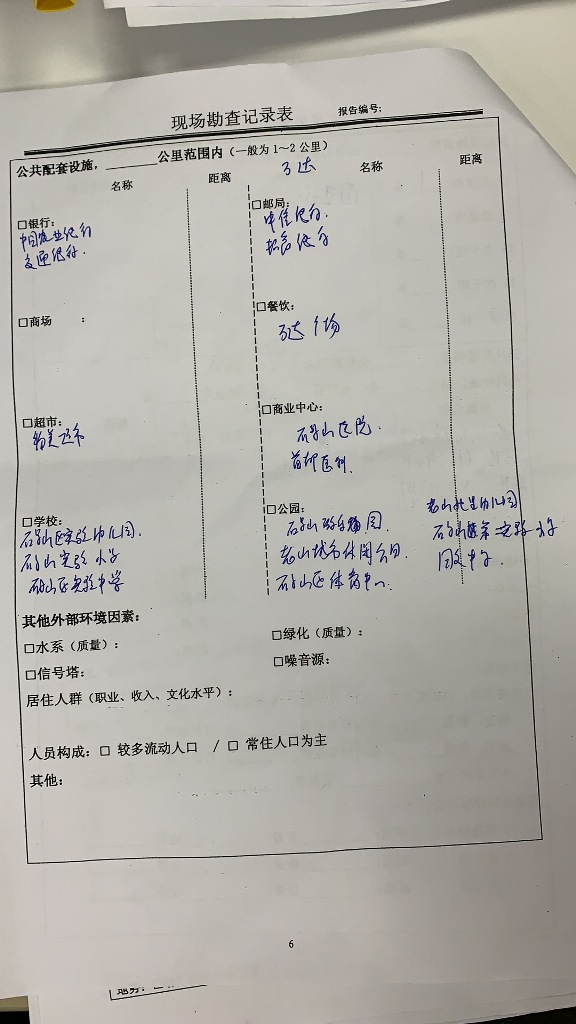 现场勘查记录表 报告编号:
公共配套设施,______公里范围内(一般为 1～2 公里)
名称 距离 万达 名称 距离
□银行: □邮局:
中国农业银行 中信银行.
交通银行. 招商银行
□商场 : □餐饮:
万达广场
□超市: □商业中心:
物美超市 石景山医院.
首都医科
□学校: □公园:
石景山区实验幼儿园. 石景山雕塑园. 老山 幼儿园
石景山实验小学 老山城市休闲公园 石景山区第 实验小学
石景山区实验中学 石景山区体育中心. 同文中学.
其他外部环境因素:
□水系(质量): □绿化(质量):
□信号塔: □噪音源:
居住人群(职业、收入、文化水平):
人员构成: □ 较多流动人口 / □ 常住人口为主
其他:
6